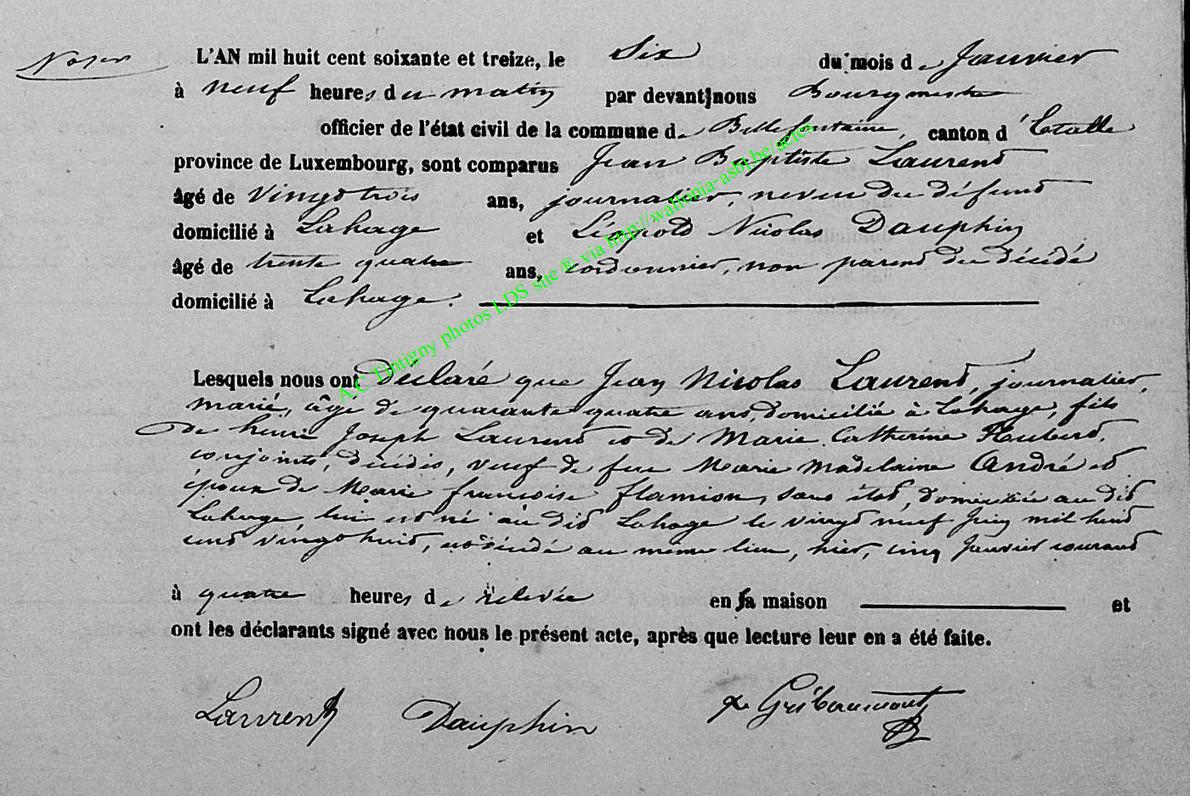 L'AN mil huit cent soixante et treize, le Six du mois de Janvier
à neuf heures du matin par devant nous Bourgmestre
officier de l'état civil de la commune de Bellefontaine, canton d'Etalle
province de Luxembourg, sont comparus Jean Baptiste Laurent
âgé de vingt trois ans, journalier, neveu du défunt
domicilié à Lahage et Léopold Nicolas Dauphin
âgé de trente quatre ans, cordonnier, non parent du décédé
domicilié à Lahage.
Lesquels nous ont déclaré que Jean Nicolas Laurent, journalier,
marié, âgé de quarante quatre ans, domicilié à Lahage, fils
de henri Joseph Laurent et de Marie Catherine
conjoints, décédés, veuf de feue Marie Madelaine André et
époux de Marie françoise flamion, sans état, domiciliée au dit
Lahage, lui est né au dit Lahage le vingt neuf Juin mil huit
cent vingt huit, est décédé au même lieu, hier, cinq Janvier courant
à quatre heures de relevée en sa maison et
ont les déclarants signé avec nous le présent acte, après que lecture leur en a été faite.
Laurent Dauphin Gribaumont
A.C. Tintigny photos LDS site ® via http://wallonia-asbl.be/actes